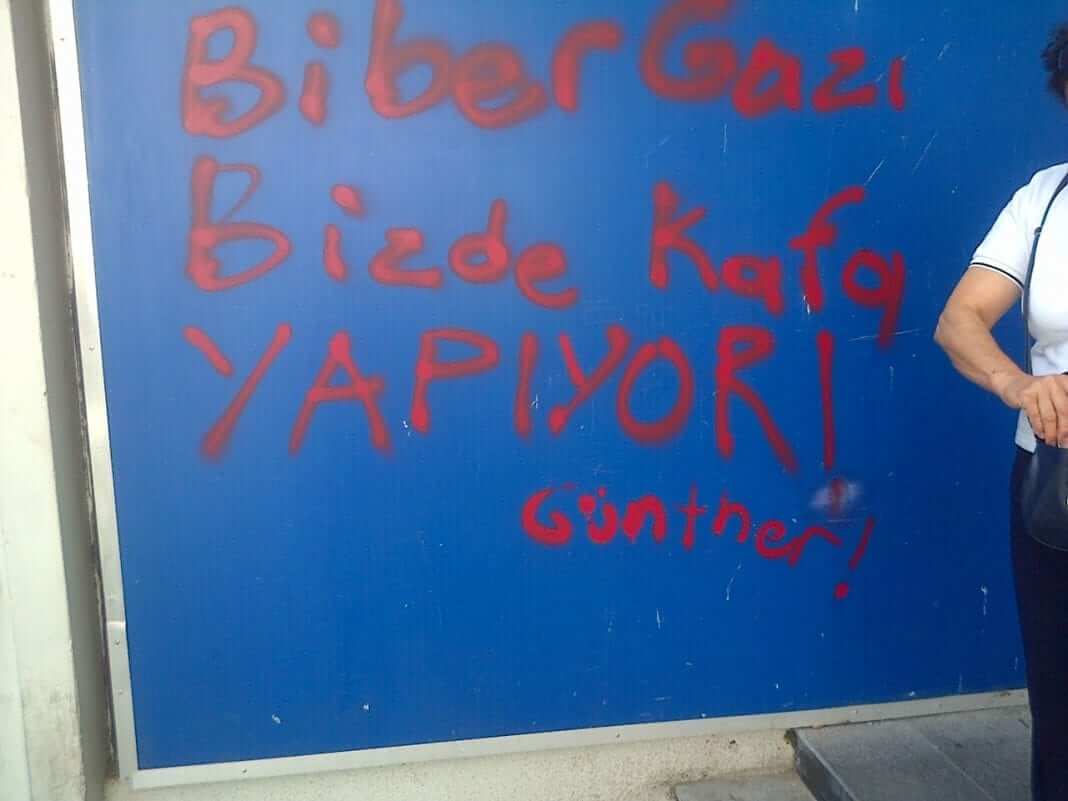 BiberGazı
Bizde Kafa
YAPIYOR!
Günther!